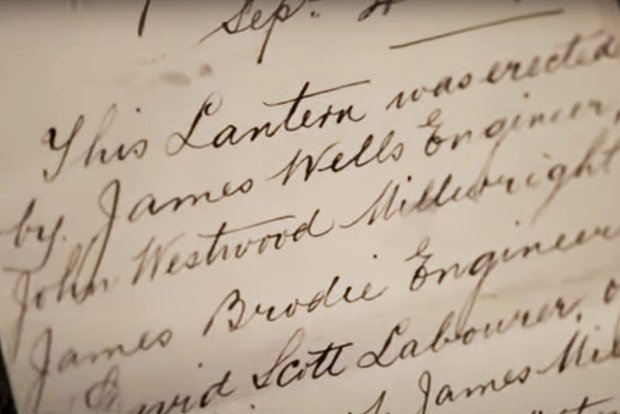 Sept. 4
This Lantern was erected
by. James Wells Engineer,
John Westwood Millwright
James Brodie Engineer
David Scott Labourer,
James Mil